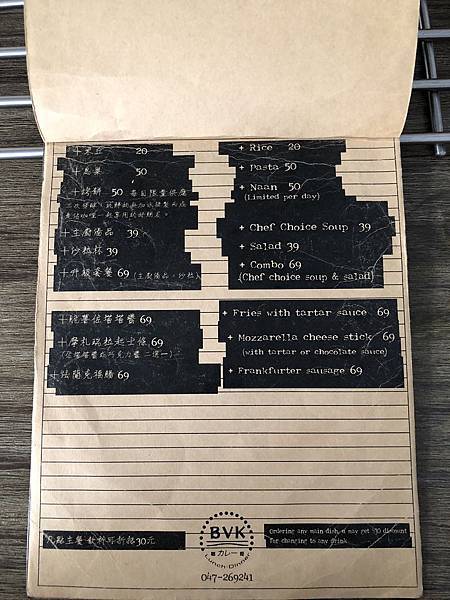 + 20
+ 50
+ 烤餅 50 每日限量供應
+ 主廚湯品 39
+ 沙拉杯 39
+ 升級套餐 69 (主廚湯品+沙拉)
+ Rice 20
+ Pasta 50
+ Naan 50
(Limited per day)
+ Chef Choice Soup 39
+ Salad 39
+ Combo 69
(Chef choice soup & salad)
+ 脆薯佐塔塔醬 69
+ 摩札瑞拉起士條 69
(佐塔塔醬或巧克力醬 二選一)
+ 法蘭克福腸 69
+ Fries with tartar sauce 69
+ Mozzarella cheese stick 69
(with tartar or chocolate sauce)
+ Frankfurter sausage 69
凡點主餐 飲料可折抵30元
BVK
カレー
Lunch·Dinner
047-269241
Ordering any main dish, u may get $30 discount
for changing to any drink.